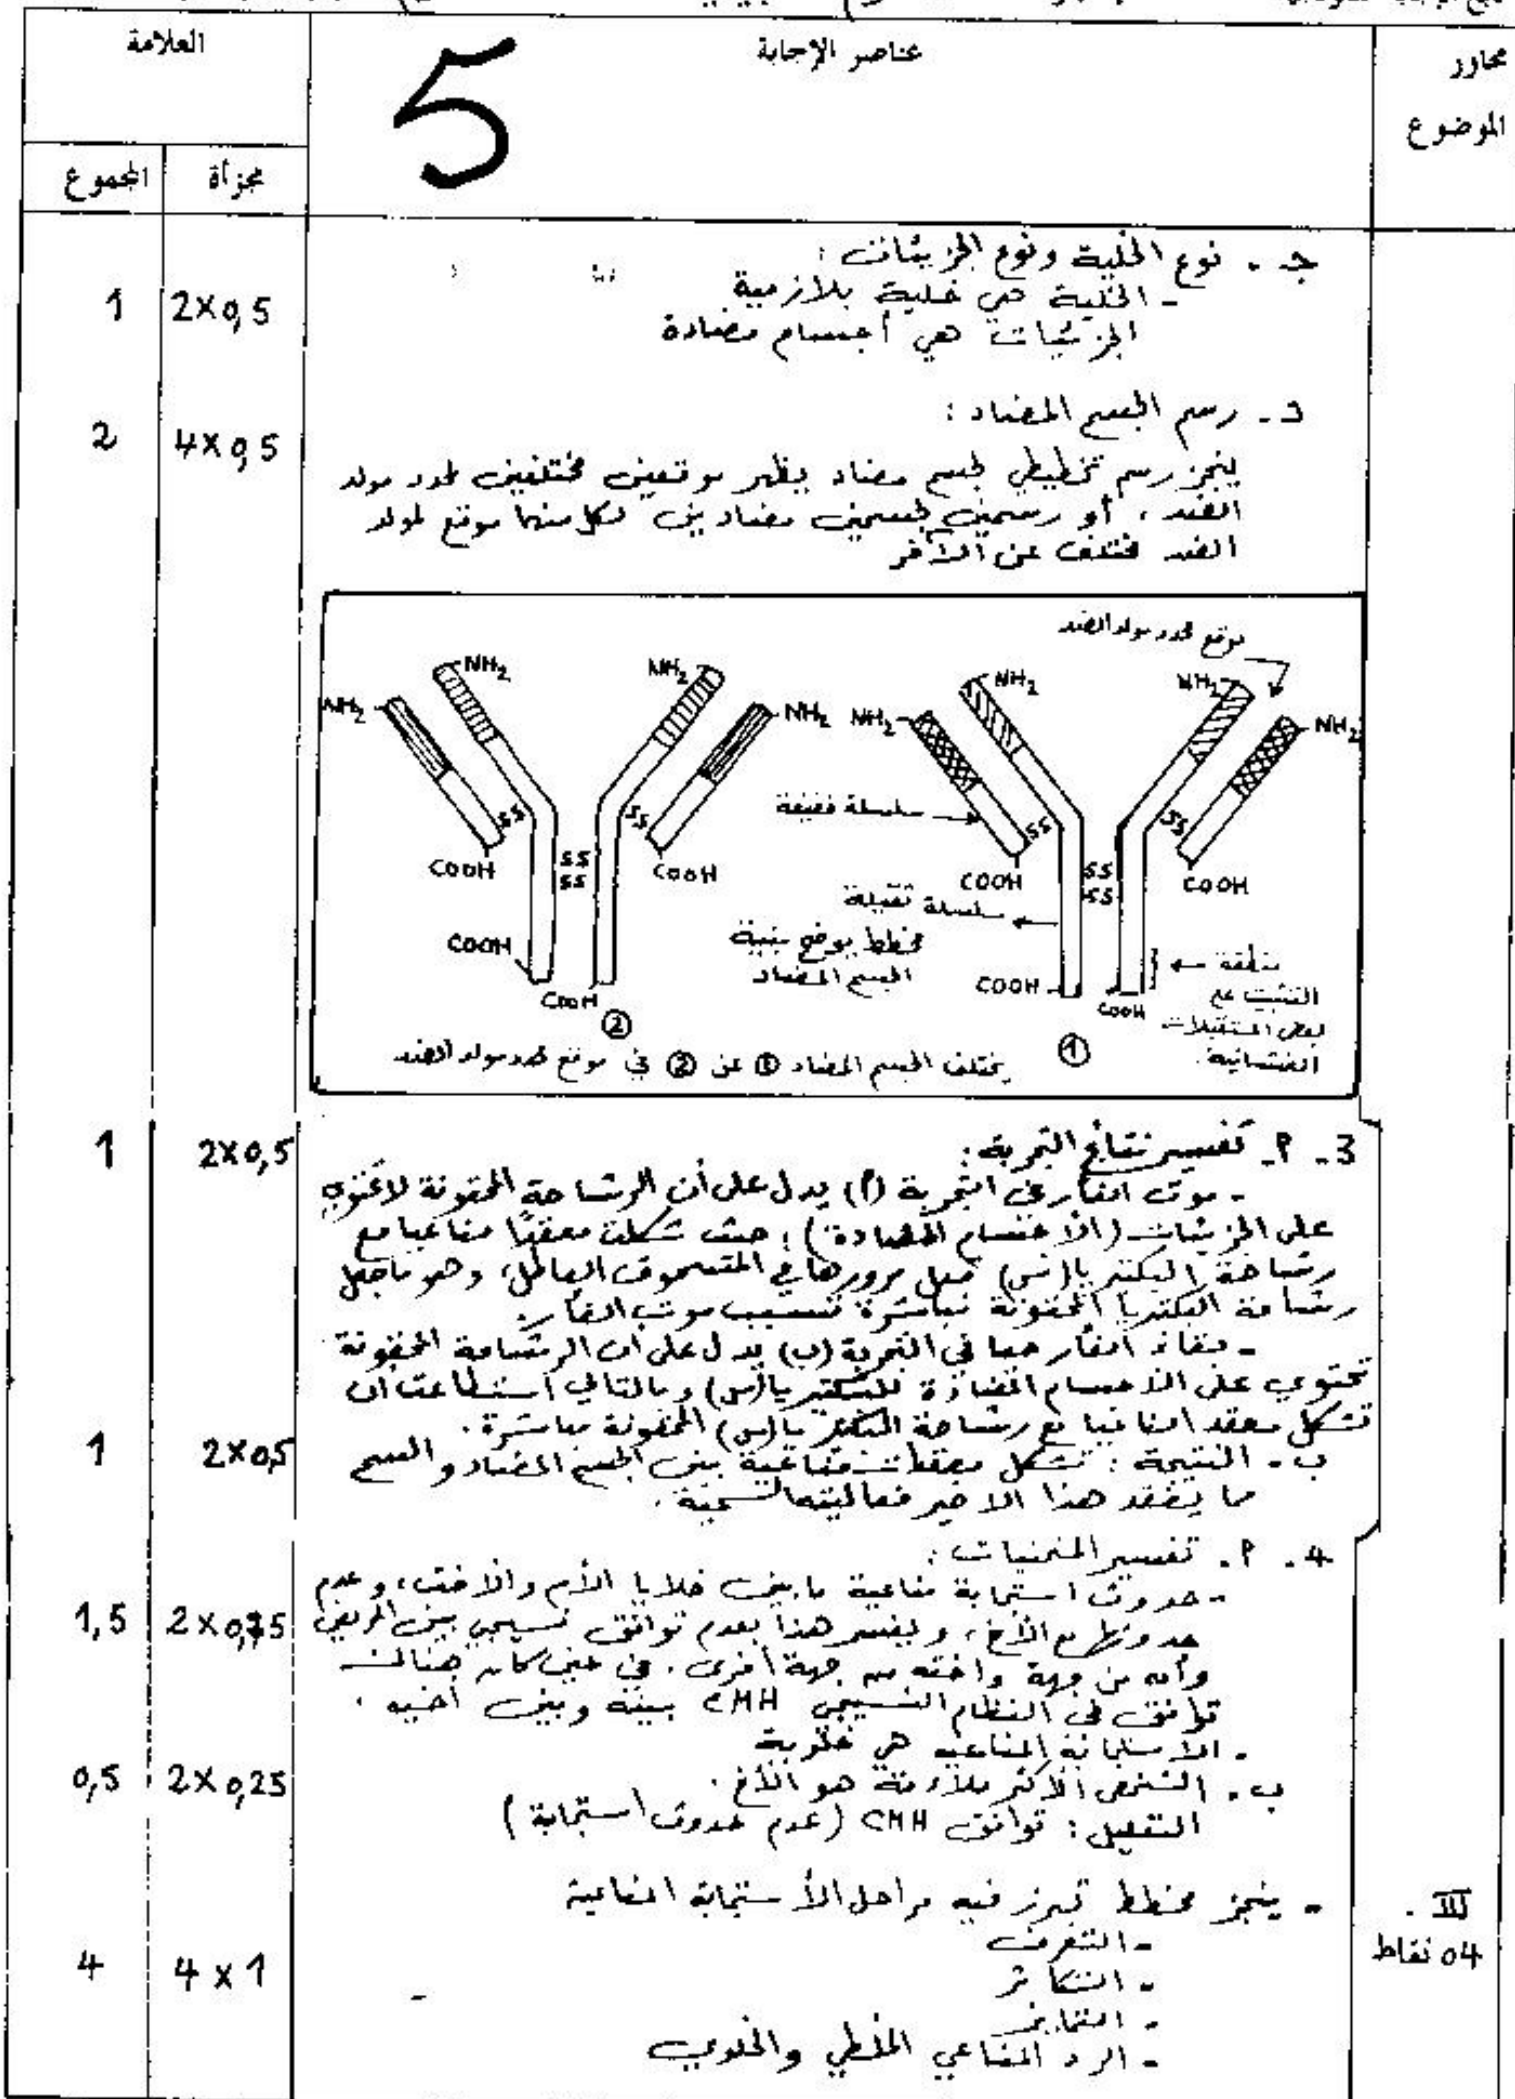 محاور
الموضوع
عناصر الإجابة
العلامة
مجزأة
المجموع
5
جـ - نوع الخلية ونوع الجزيئات :
- الخلية هي خلية بلازمية
الجزيئات هي أجسام مضادة
2×0,5
1
د - رسم الجسم المضاد :
4×0,5
2
ينجز رسم تخطيطي لجسم مضاد يظهر موقعين مختلفين لمحدد مولد
الضد ، أو رسمين لجسمين مضادين لكل منهما موقع لمولد
الضد مختلف عن الآخر
موقع محدد مولد الضد
NH2 NH2 NH2 NH2
NH2 NH2 NH2 NH2
سلسلة خفيفة
SS SS SS SS
SS SS
SS SS
COOH COOH COOH COOH
سلسلة ثقيلة
مخطط يوضح بنية
الجسم المضاد
COOH COOH
COOH COOH
منطقة
التثبيت مع
بعض المستقبلات
الغشائية
① ②
يختلف الجسم المضاد ① عن ② في موقع محدد مولد الضد
3 - أ - تفسير نتائج التجربة :
2×0,5
1
- موت الفأر في التجربة (أ) يدل على أن الرشاحة المحقونة لا تحتوي
على الجزيئات (الأجسام المضادة) ، حيث شكلت معقدا مناعيا مع
رشاحة البكتريا (س) قبل مرورها في المتسحوق العاطل، وهو ما جعل
رشاحة البكتريا المحقونة مباشرة تسبب موت الفأر
- بقاء الفأر حيا في التجربة (ب) يدل على أن الرشاحة المحقونة
تحتوي على الأجسام المضادة للبكتيريا (س) وبالتالي استطاعت أن
تشكل معقد امناعيا مع رشاحة البكتريا (س) المحقونة مباشرة .
ب - النتيجة : تشكل معقدات مناعية بين الجسم المضاد و السم
2×0,5
1
ما يفقد هذا الاخير فعاليته السمية .
4 - أ - تفسير المنحنيات :
- حدوث استجابة مناعية ما بين خلايا الأم والأخت ، وعدم
حدوثها مع الأخ ، ويفسر هذا بعدم توافق نسيجي بين المريض
2×0,75
1,5
وأمه من جهة واخته من جهة أخرى . في حين كان هنالك
توافق في النظام النسيجي CMH بينه وبين أخيه .
- الاستجابة المناعية هي خلوية
ب - الشخص الأكثر ملاءمة هو الأخ .
2×0,25
0,5
التعليل : توافق CMH (عدم حدوث استجابة)
III .
04 نقاط
- ينجز مخطط تبرز فيه مراحل الأستجابة المناعية
- التعرف
- التكاثر
- التمايز
- الرد المناعي الخلطي والخلوي
4×1
4